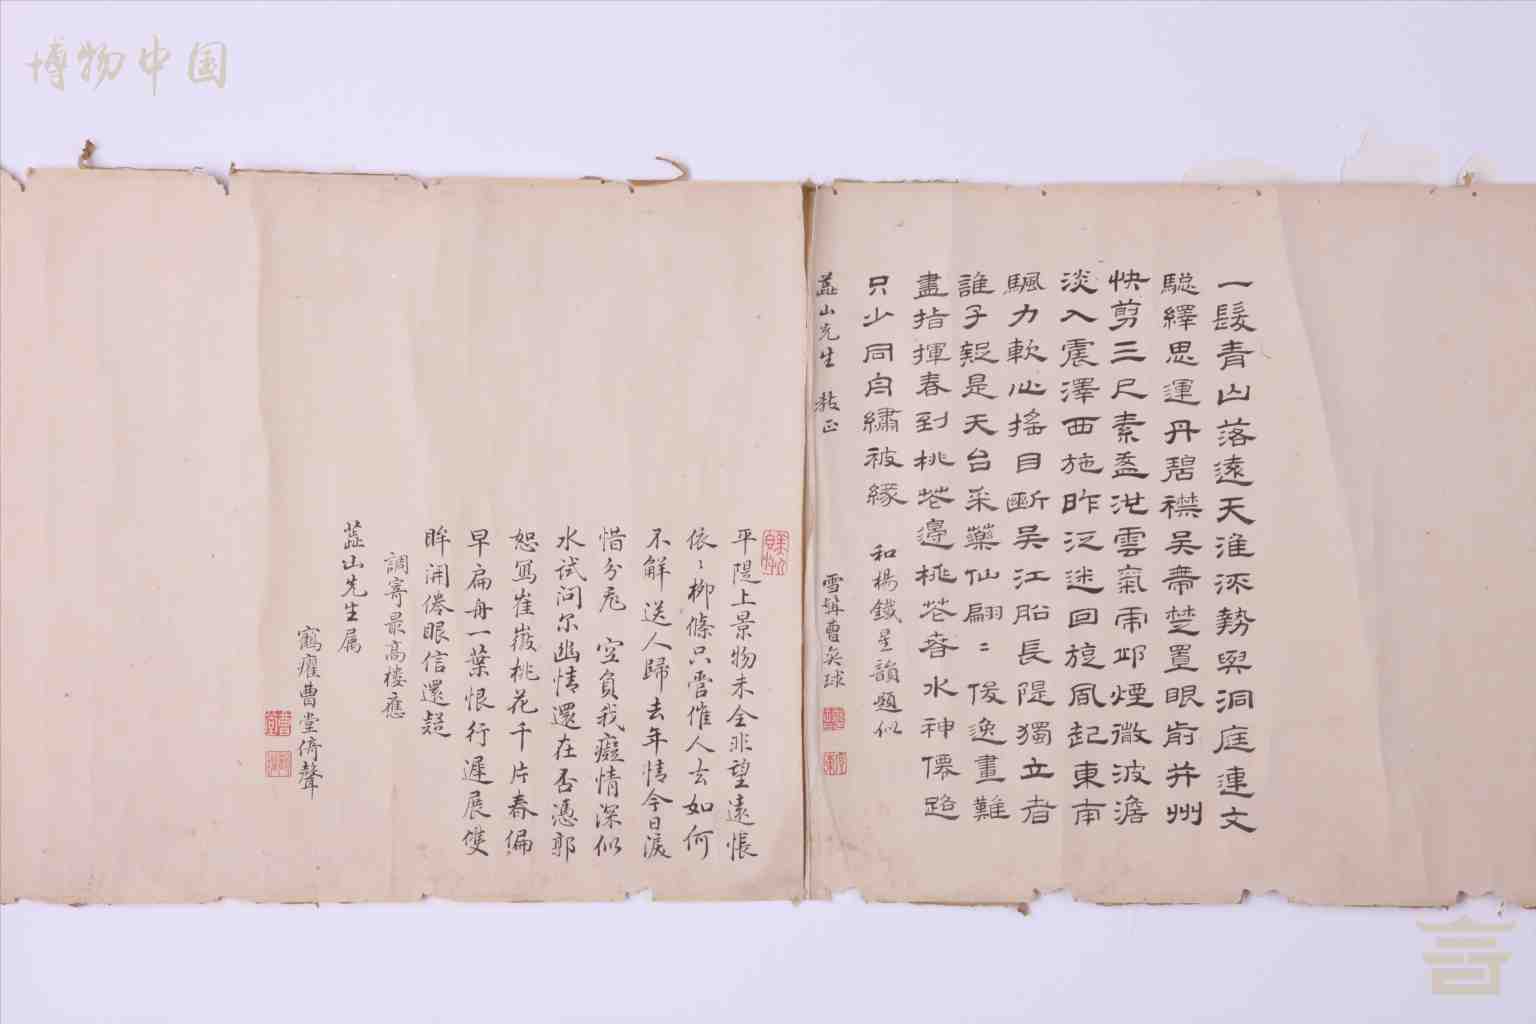 博物中国
一髮青山落遠天淮流勢與洞庭連文
驄繹思運丹碧襟吳帶楚置眼前并州
快剪三尺素盎泄雲氣雨邛煙微波澹
淡入震澤西施昨泛迷回旋風起東南
颿力軟心搖目斷吳江船長隄獨立者
誰子疑是天台采藥仙翩〻俊逸畫難
盡指揮春到桃花邊桃花春水神僊路
只少同舟繡被緣
和楊鐵星韻題似
蓝山先生 教正
雪䕶曹矣球
平隄上景物未全非望遠悵
依〻柳條只管催人去如何
不解送人歸去年情今日淚
惜分飛 空負我癡情深似
水試問尔幽情還在否憑郭
恕寫崔嶶桃花千片春偏
早扁舟一葉恨行遲展雙
眸開倦眼信還疑
調寄最高樓應
蓝山先生属
鶴癯曹堂倚聲